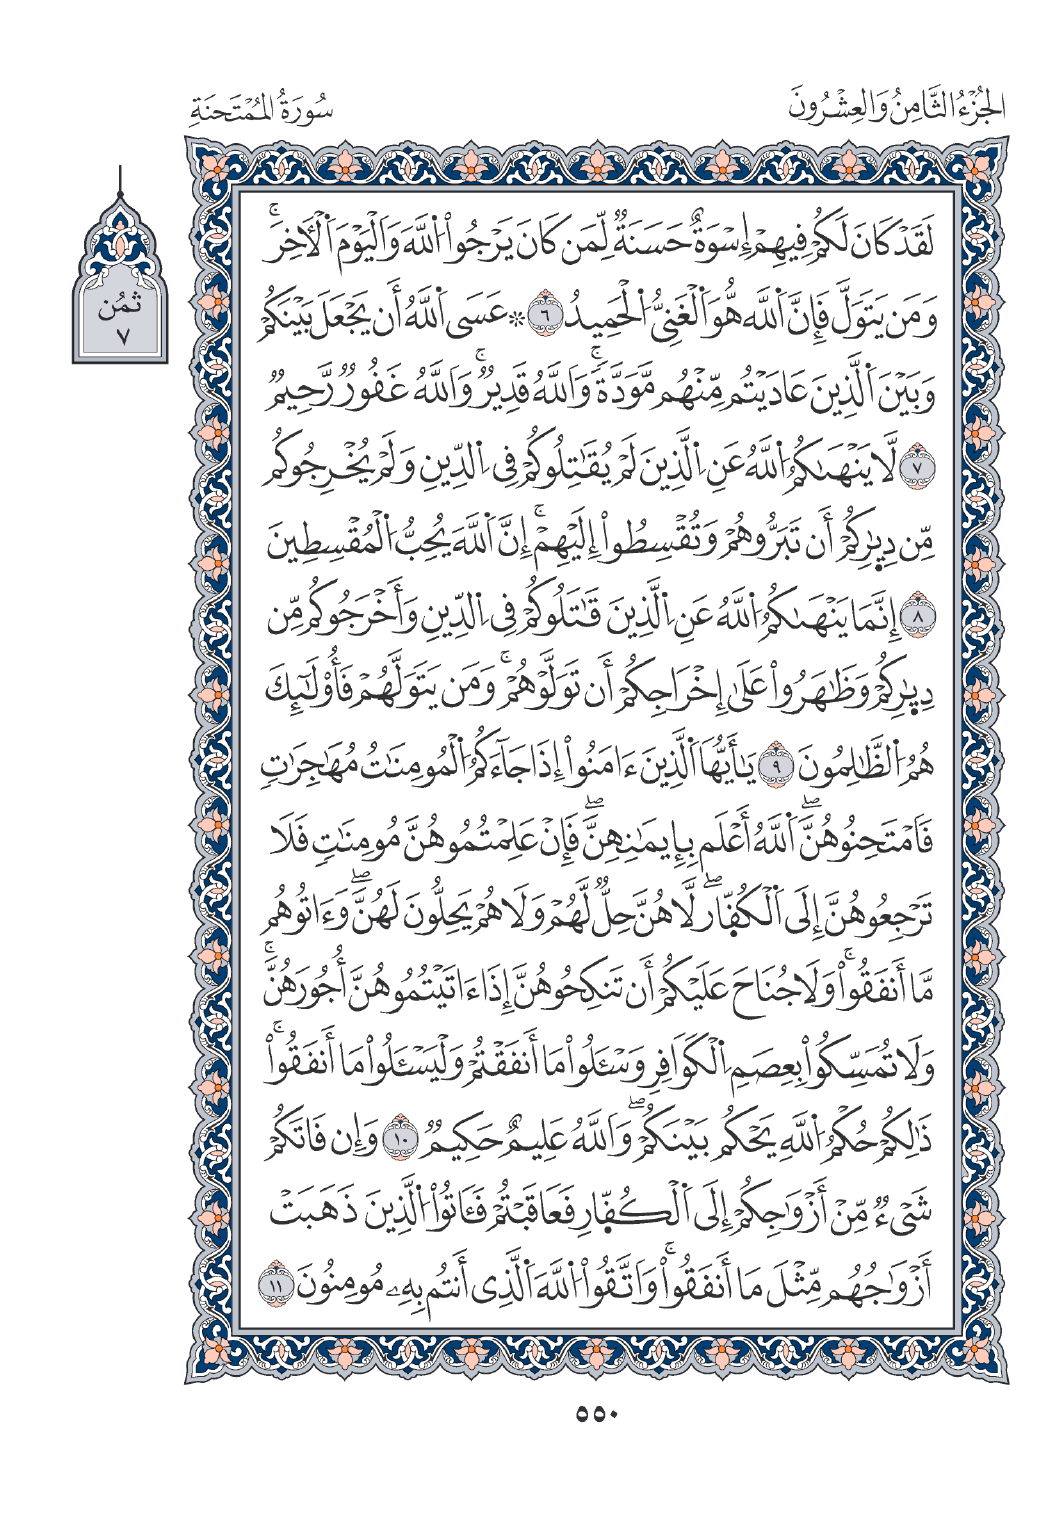 الجُزْءُ الثَّامِنُ وَالعِشْرُونَ
سُورَةُ المُمْتَحَنَةِ
ثُمُن
٧
لَقَدْ كَانَ لَكُمْ فِيهِمْ إِسْوَةٌ حَسَنَةٌ لِّمَن كَانَ يَرْجُوا۟ اُ۬للَّهَ وَالْيَوْمَ اَ۬لْأٓخِرَۚ
وَمَن يَتَوَلَّ فَإِنَّ اَ۬للَّهَ هُوَ اَ۬لْغَنِيُّ اُ۬لْحَمِيدُ ٦ ۞ عَسَى اَ۬للَّهُ أَن يَجْعَلَ بَيْنَكُمْ
وَبَيْنَ اَ۬لَّذِينَ عَادَيْتُم مِّنْهُم مَّوَدَّةٗۚ وَاللَّهُ قَدِيرٌۚ وَاللَّهُ غَفُورٌ رَّحِيمٌ
٧ لَّا يَنْهَىٰكُمُ اُ۬للَّهُ عَنِ اِ۬لَّذِينَ لَمْ يُقَٰتِلُوكُمْ فِي اِ۬لدِّينِ وَلَمْ يُخْرِجُوكُم
مِّن دِيٰ۪رِكُمْ أَن تَبَرُّوهُمْ وَتُقْسِطُوٓا۟ إِلَيْهِمْۚ إِنَّ اَ۬للَّهَ يُحِبُّ اُ۬لْمُقْسِطِينَ
٨ إِنَّمَا يَنْهَىٰكُمُ اُ۬للَّهُ عَنِ اِ۬لَّذِينَ قَٰتَلُوكُمْ فِي اِ۬لدِّينِ وَأَخْرَجُوكُم مِّن
دِيٰ۪رِكُمْ وَظَٰهَرُوا۟ عَلَىٰ إِخْرَاجِكُمْ أَن تَوَلَّوْهُمْۚ وَمَن يَتَوَلَّهُمْ فَأُو۟لَٰٓئِكَ
هُمُ اُ۬لظَّٰلِمُونَ ٩ يَٰأَيُّهَا اَ۬لَّذِينَ ءَامَنُوا۟ إِذَا جَآءَكُمُ اُ۬لْمُومِنَٰتُ مُهَٰجِرَٰتٖ
فَامْتَحِنُوهُنَّۖ اَ۬للَّهُ أَعْلَم بِإِيمَٰنِهِنَّۖ فَإِنْ عَلِمْتُمُوهُنَّ مُومِنَٰتٖ فَلَا
تَرْجِعُوهُنَّ إِلَى اَ۬لْكُفّ۪ارِۖ لَا هُنَّ حِلٌّ لَّهُمْ وَلَا هُمْ يَحِلُّونَ لَهُنَّۖ وَءَاتُوهُم
مَّا أَنفَقُوا۟ۚ وَلَا جُنَاحَ عَلَيْكُمْ أَن تَنكِحُوهُنَّ إِذَا ءَاتَيْتُمُوهُنَّ أُجُورَهُنَّۚ
وَلَا تُمَسِّكُوا۟ بِعِصَمِ اِ۬لْكَوَافِرِ وَسْـَٔلُوا۟ مَا أَنفَقْتُمْ وَلْيَسْـَٔلُوا۟ مَا أَنفَقُوا۟ۚ
ذَٰلِكُمْ حُكْمُ اُ۬للَّهِ يَحْكُم بَيْنَكُمْۖ وَاللَّهُ عَلِيمٌ حَكِيمٌ ١٠ وَإِن فَاتَكُمْ
شَيْءٌ مِّنْ أَزْوَٰجِكُمْ إِلَى اَ۬لْكُفّ۪ارِ فَعَاقَبْتُمْ فَـَٔاتُوا۟ اُ۬لَّذِينَ ذَهَبَتْ
أَزْوَٰجُهُم مِّثْلَ مَا أَنفَقُوا۟ۚ وَاتَّقُوا۟ اُ۬للَّهَ اَ۬لَّذِي أَنتُم بِهِۦ مُومِنُونَ ١١
٥٥٠